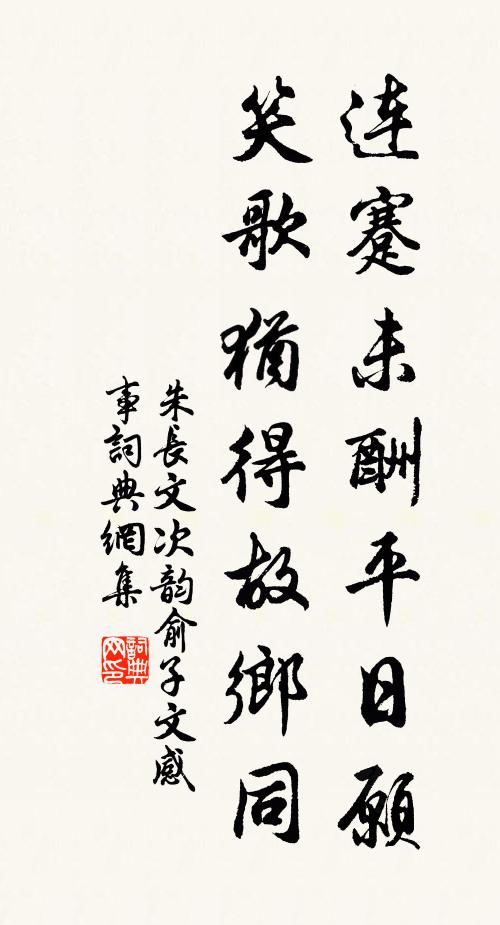 连蹇未酬平日愿
笑歌猶得故鄉同
朱長文次韵俞子文感
事詞典網集
詞典
网印